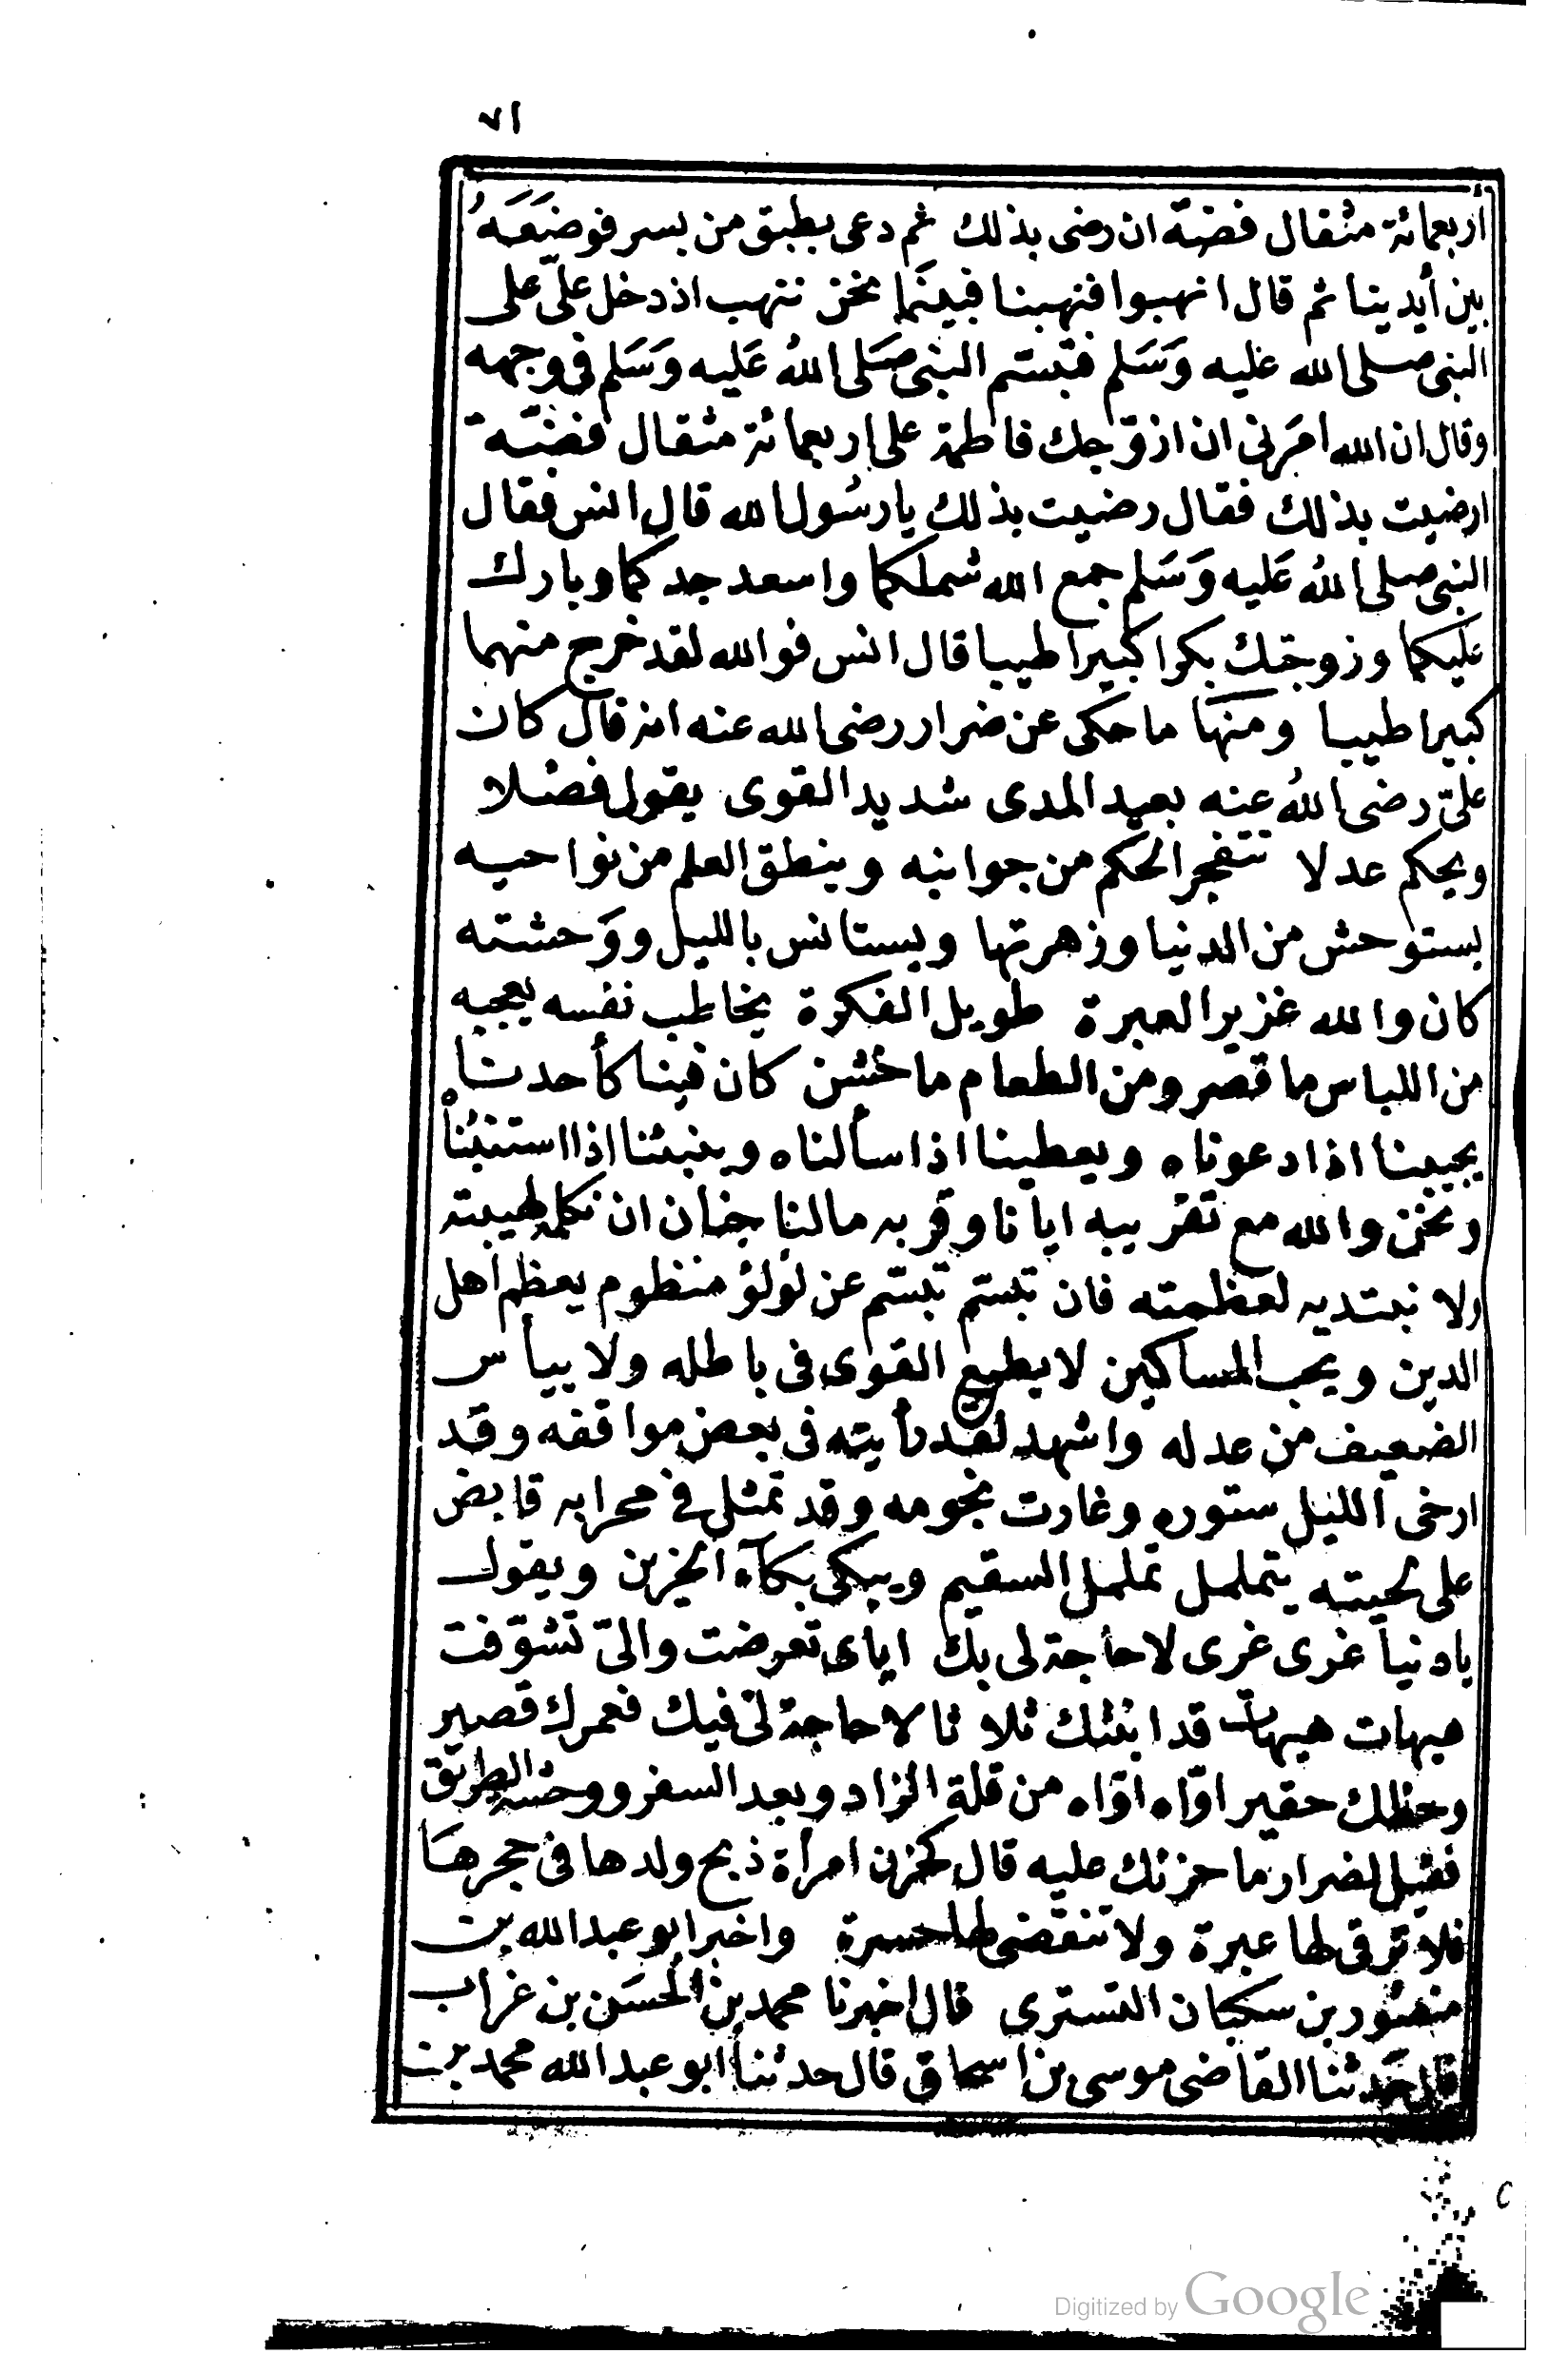 ٧١
أربعمائة مثقال فضة ان رضى بذلك ثم دعى بطبق من بسر فوضَعَهُ
بين أيدينا ثم قال انهبوا فنهبنا فبينَما نحن ننهب اذ دخل علىّ على
النبى صلى الله عليه وَسَلم فتبسّم النبى صَلى اللهُ عَليه وَسَلم فى وجهه
وقال ان الله امَرنى ان ازوّجك فاطمة على اربعمائة مثقال فضّة
ارضيت بذلك فقال رضيت بذلك يا رسُول الله قال انس فقال
النبى صلى اللهُ عَليه وَسَلم جمع الله شملكما واسعد جدكما وبارك
عليكما وزوجتك بكرا كبيرا طيبا قال انس فوالله لقد خرج منهما
كبيرا طيبا ومنهَا ما حكى عن ضرار رضى الله عنه انه قال كان
علىّ رضى اللهُ عنه بعيد المدى شديد القوى يقول فضلا
ويحكم عدلا تتفجر الحكم من جوانبه وينطق العلم من نواحيه
يستوحش من الدنيا وزهرتها ويستانس بالليل ووَحشته
كان والله غزير العبرة طويل الفكرة يخاطب نفسه يعجبه
من اللباس ما قصر ومن الطعام ما خشن كان فينا كأحدنا
يجيبنا اذا دعوناه ويعطينا اذا سألناه وينبئنا اذا استنبئناْ
ونحن والله مع تقريبه ايانا وقربه مالنا جنان ان نكلمه لهيبته
ولا نبتديه لعظمته فان تبسّم تبسّم عن لؤلؤ منظوم يعظم أهل
الدين ويحب المساكين لا يطيع القوى فى باطله ولا ييأس
الضعيف من عدله واشهد لقد رأيته فى بعض مواقفه وقد
ارخى الليل ستوره وغارت نجومه وقد تمثل في محرابه قابض
على لحيته يتململ تململ السقيم ويبكى بكآء الحزين ويقول
يا دنيا غرى غرى لا حاجة لى بك اياى تعرضت والىّ تشوّفت
هيهات هيهات قد ابنتك ثلاثا لا حاجة لى فيك فعمرك قصير
وحظك حقير اوّاه اوّاه من قلة الزاد وبعد السفر ووحشة الطريق
فقيل لضرار ما حزنك عليه قال كحزن امرأة ذبح ولدها فى حجرهَا
فلا ترقى لها عبرة ولا تنقضى لها حسرة واخبر ابو عبد الله بن
منصُور بن سكجان التسترى قال اخبرنا محمد بن الحسَن بن غراب
قال حَدثنا القاضى موسى بن اسحاق قال حدثنا ابو عبد الله محمد بن
Digitized by Google